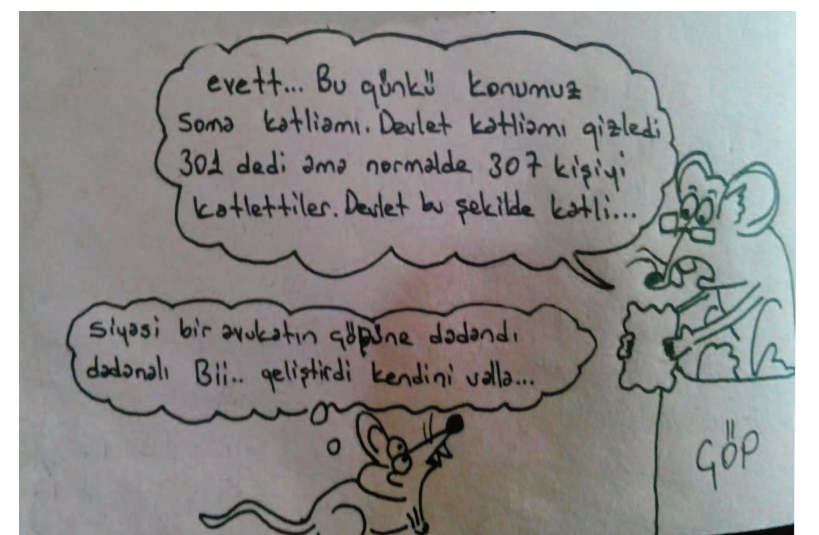 evett... Bu günkü konumuz
Soma katliamı. Devlet katliamı gizledi
301 dedi ama normalde 307 kişiyi
katlettiler. Devlet bu şekilde katli...
Siyasi bir avukatın çöpüne dadandı
dadanalı Bii.. geliştirdi kendini valla...
ÇÖP